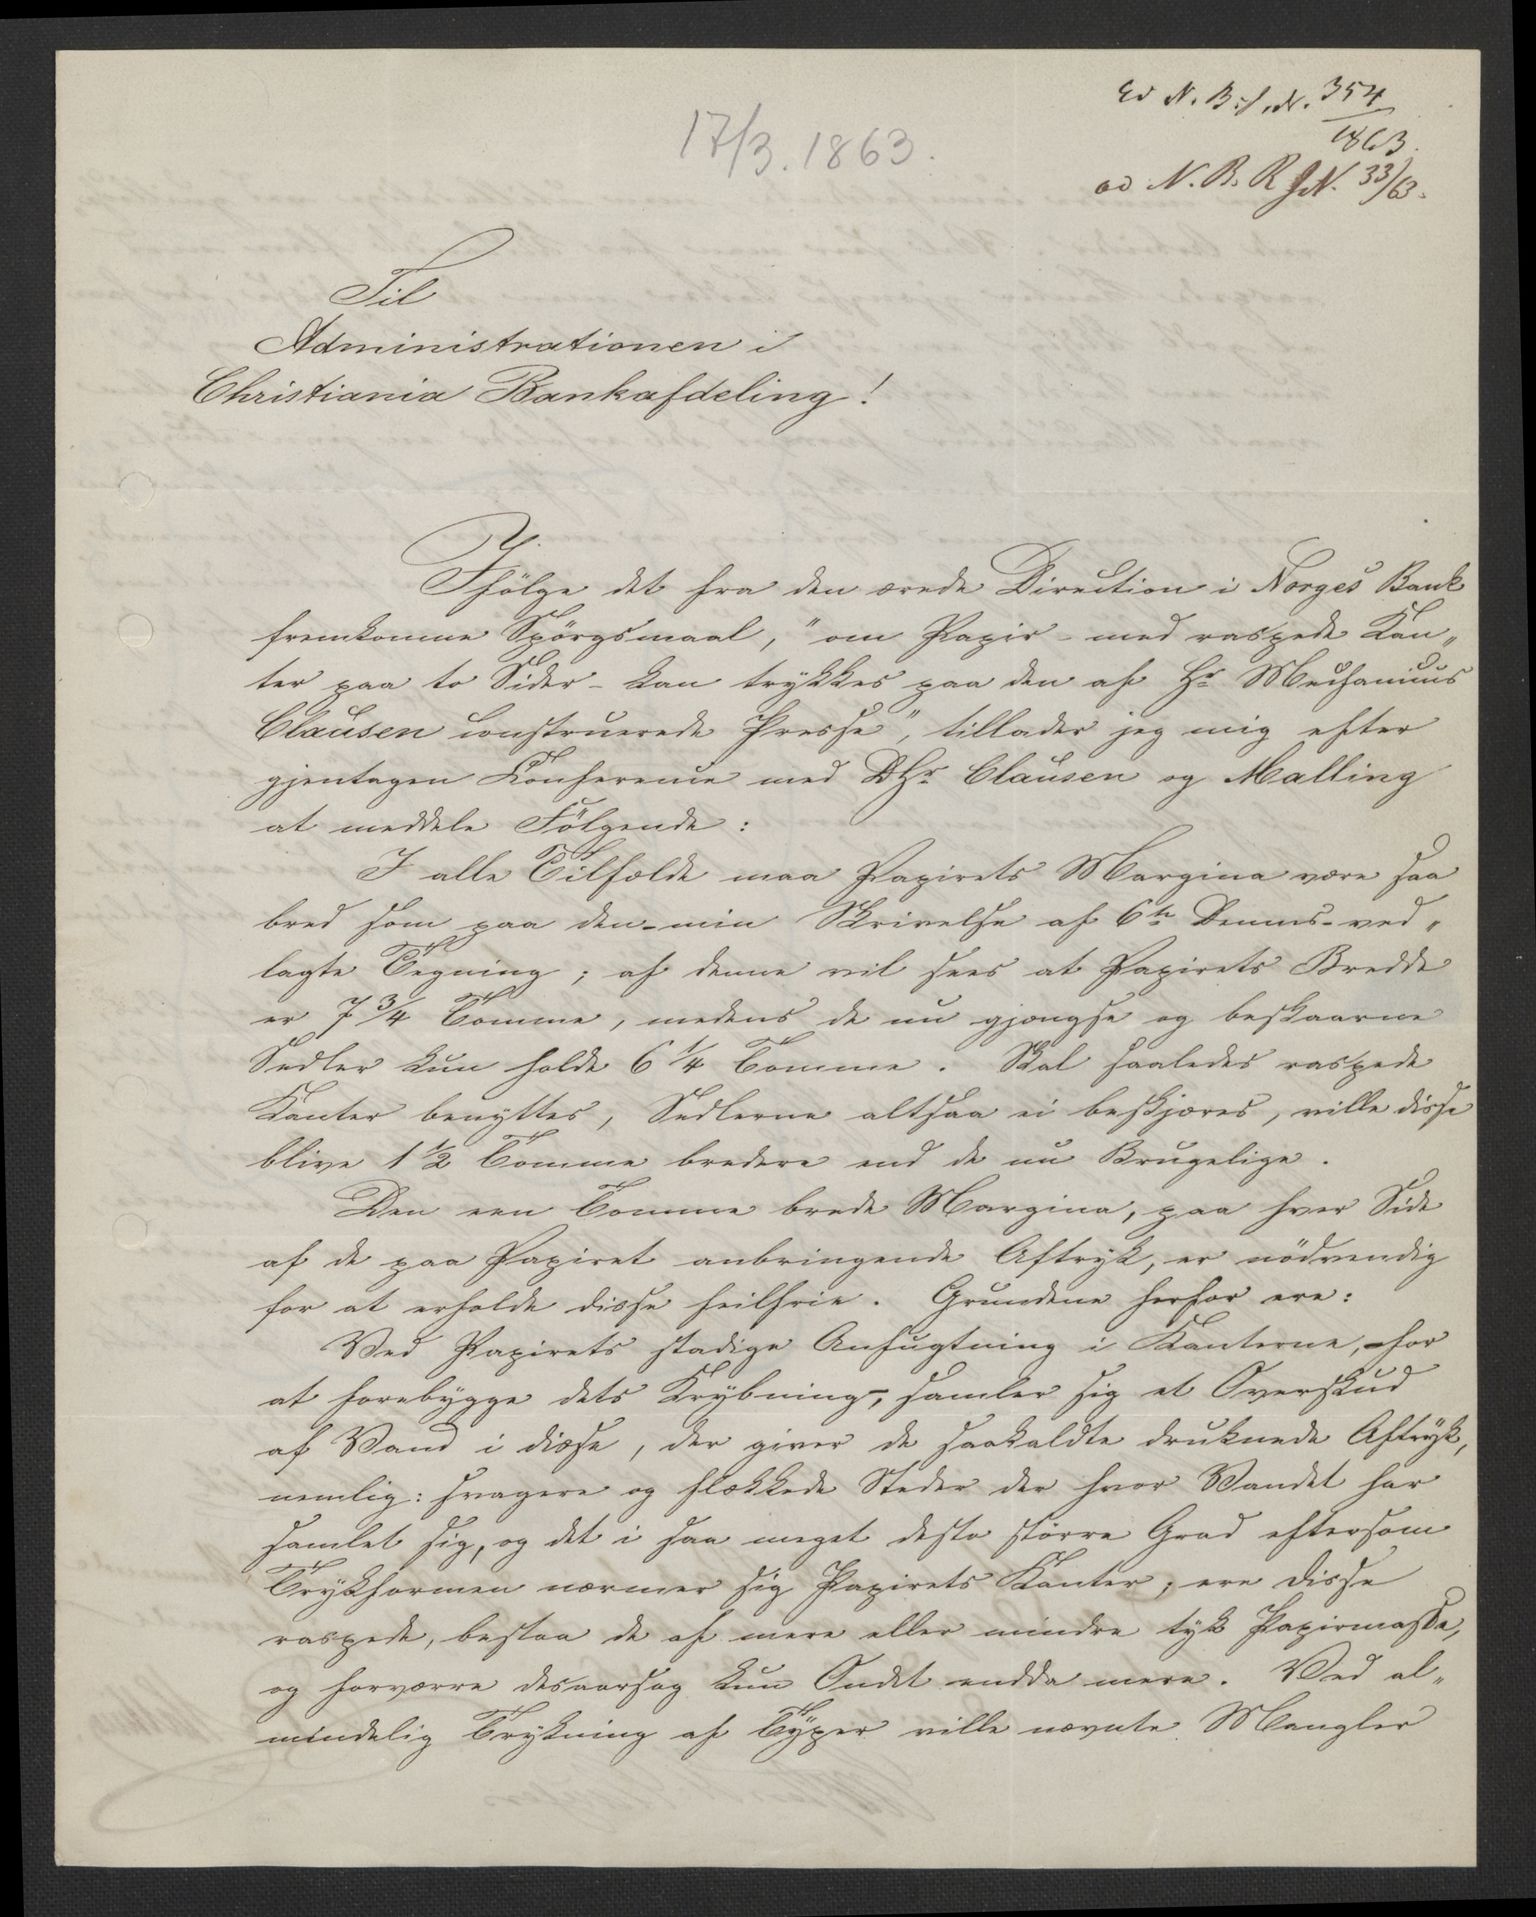 ad N. B. J. N. 354
1863.
ad N. B. R J.N. 33/63.
17/3. 1863.
Til
Administrationen i
Christiania Bankafdeling!
Ifölge det fra den ærede Direction i Norges Bank
fremkomne Spörgsmaal, "om Papir - med raspede Kan„
ter paa to Sider - kan trykkes paa den af Hr Mechanicus
Clausen construerede Presse", tillader jeg mig efter
gjentagen Conference med DHr Clausen og Malling
at meddele Fölgende:
I alle Tilfælde maa Papirets Margina være saa
bred som paa den - min Skrivelse af 6te Dennes - ved„
lagte Tegning; af denne vil sees at Papirets Bredde
er 7 3/4 Tomme, medens de nu gjængse og beskaarne
Sedler kun holde 6 1/4 Tomme. Skal saaledes raspede
Kanter benyttes, Sedlerne altsaa ei beskjæres, ville disse
blive 1 1/2 Tomme bredere end de nu Brugelige.
Den een Tomme brede Margina, paa hver Side
af de paa Papiret anbringende Aftryk, er nödvendig
for at erholde disse feilfrie. Grundene herfor ere:
Ved Papirets stadige Anfugtning i Kanterne, - for
at forebygge dets Krybning -, samler sig et Overskud
af Vand i disse, der giver de saakaldte druknede Aftryk,
nemlig: svagere og flekkede Steder der hvor Vandet har
samlet sig, og det i saa meget desto större Grad eftersom
Trykformen nærmer sig Papirets Kanter; ere disse
raspede, bestaa de af mere eller mindre tyk Papirmasse,
og forværre desaarsag kun Ondet endda mere. Ved al„
mindelig Trykning af Typer ville nævnte Mangler